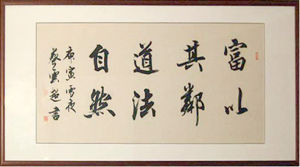 富以
其鄰
道法
自然
庚寅雪夜
書